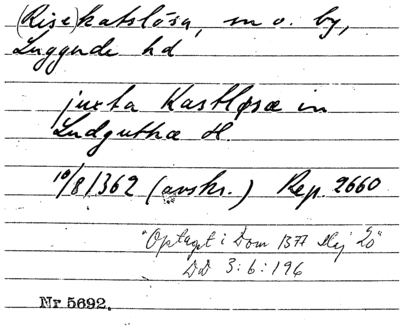 (Rise)katslösa, m o. by,
Luggude hd
juxta Kastløsæ in
Ludguthæ H.
10/8 1362 (avskr.) Rep. 2660
"Optaget i Dom 1377 Maj 20"
DD 3:6:196
Nr 5692.